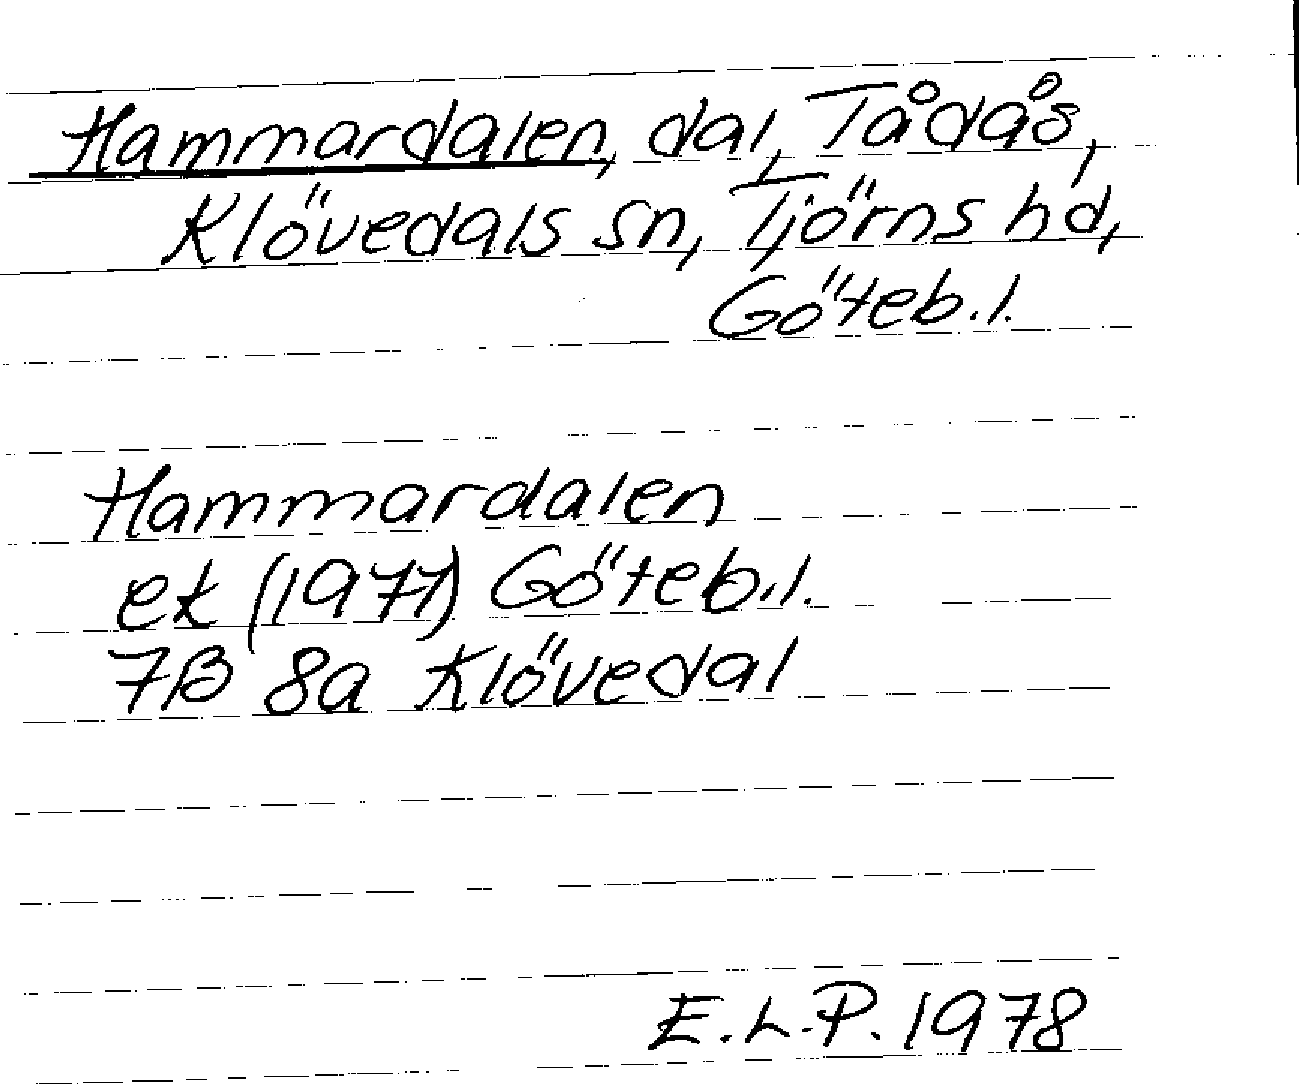 Hammardalen, dal, Tådås,
Klövedals sn, Tjörns hd,
Göteb.l.
Hammardalen
ek (1977) Göteb.l.
7B 8a Klövedal
E.L.P. 1978